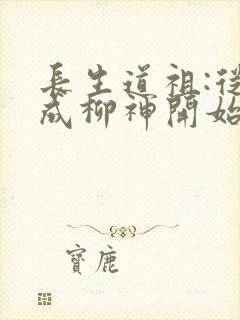 長生道祖:從
成柳神開始
寶鹿